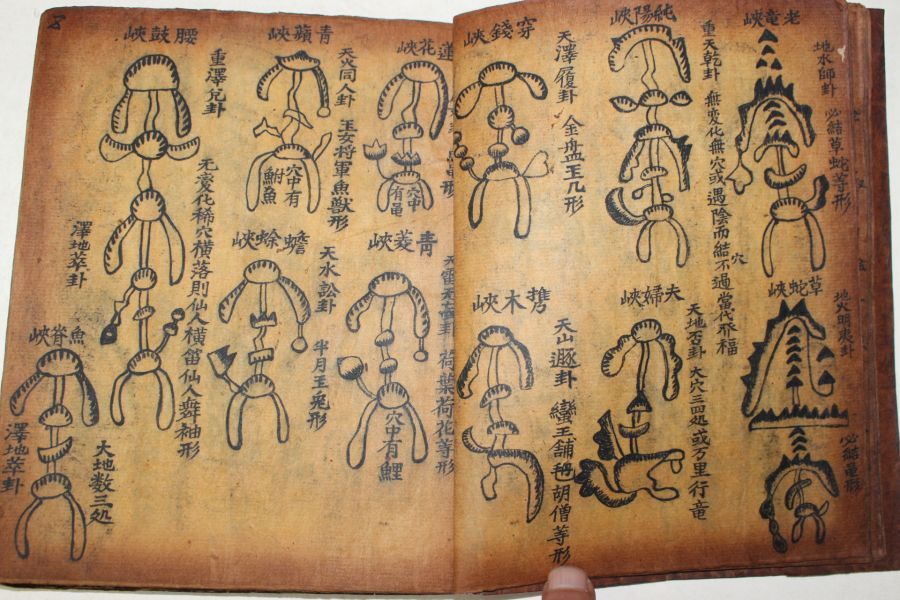 老竜峽
地水師卦 必結草蛇等形
草蛇峽
地火明夷卦
必結亀形
純陽峽
重天乾卦 無変化無穴或遇陰而結不過當代飛福
穴
夫婦峽
天地否卦 大穴三四処或万里行竜
穿錢峽
天澤履卦 金盤玉几形
携木峽
天山遯卦 蠻王舖 胡僧等形
蓮花峽
穴中有亀
青菱峽
荷葉荷花等形
穴中有鯉
青蘋峽
天火同人卦 玉女將軍魚獸形
穴中有鮒魚
蟾蜍峽
天水訟卦 半月玉兎形
腰鼓峽
重澤兌卦
无変化稀穴橫落則仙人橫笛仙人舞袖形
澤地萃卦
魚脊峽
澤地萃卦
大地数三処